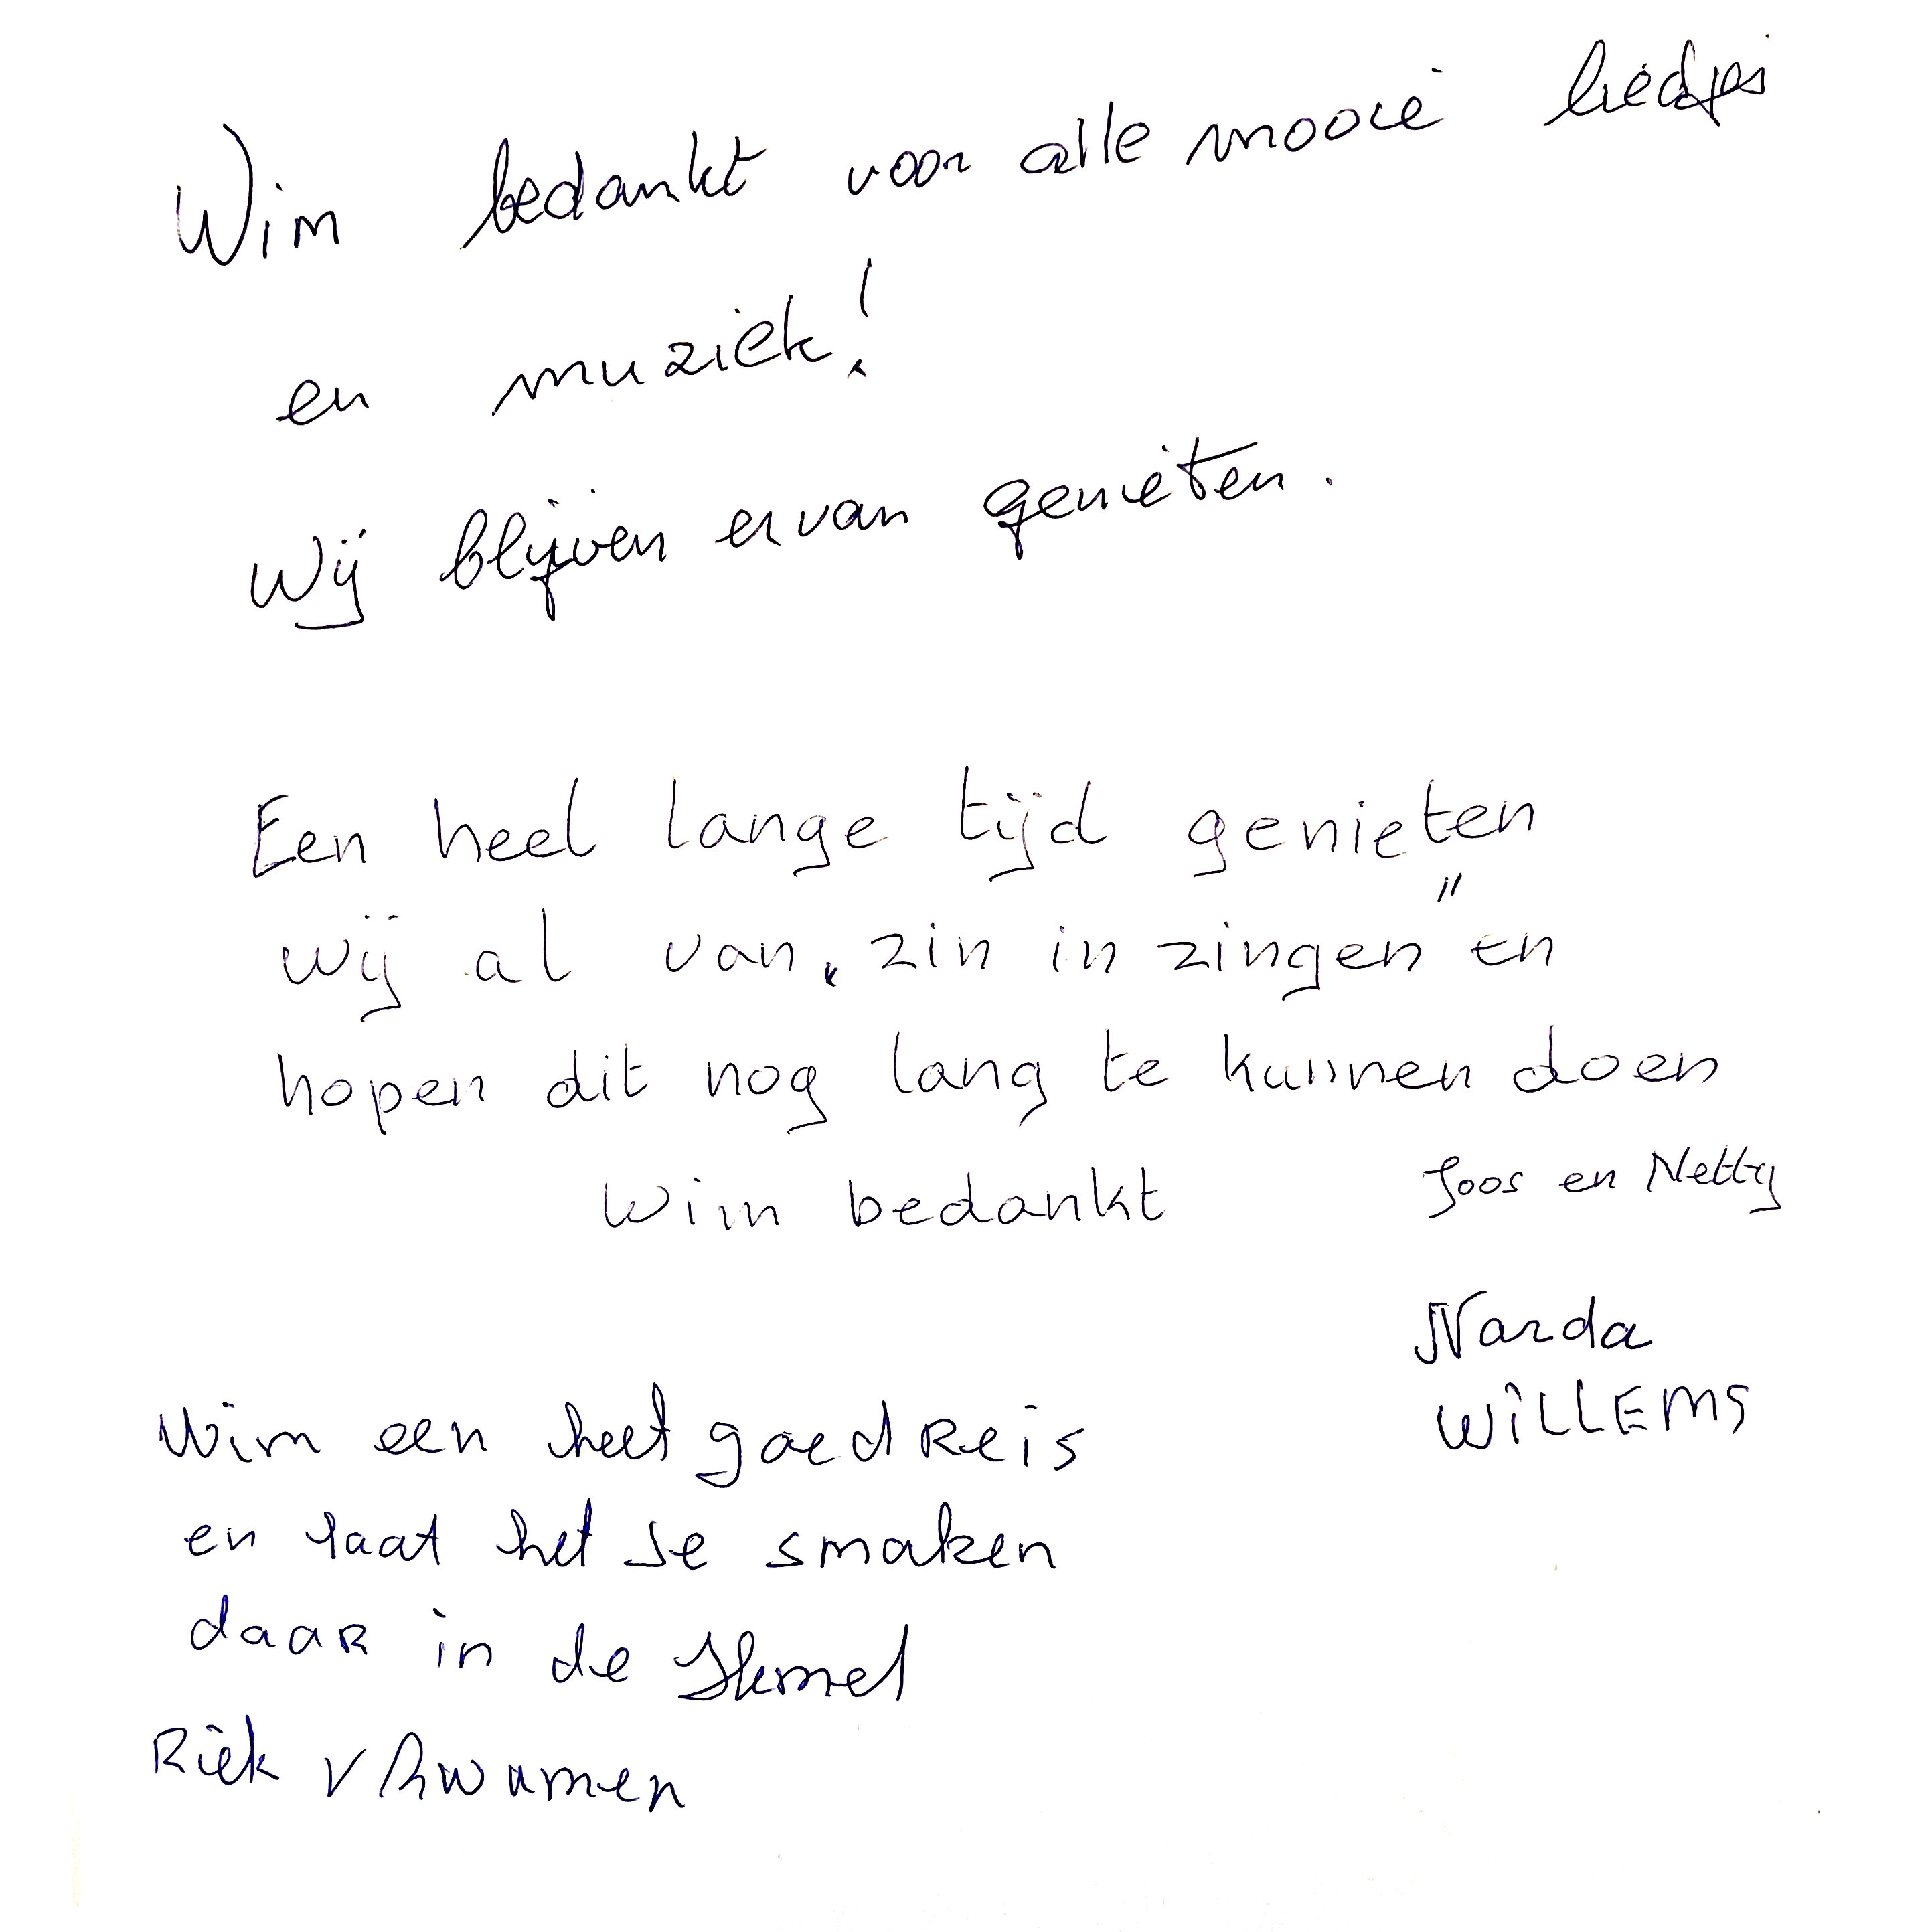 Wim bedankt voor alle mooie liedjes
en muziek!
Wij blijven ervan genieten.
Een heel lange tijd genieten
wij al van „zin in zingen" en
hopen dit nog lang te kunnen doen
Wim bedankt
Joos en Netty
Narda
WiLLEMS
Wim een heel goed Reis
en laat het Je smaken
daar in de Hemel
Riek v